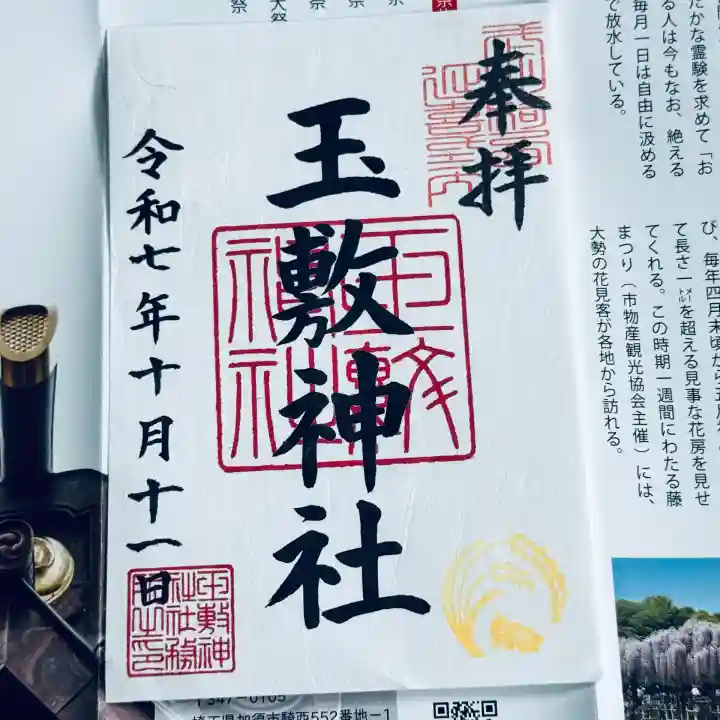 奉拝
玉敷神社
令和七年十月十一日
玉敷神
社社務
所之印
たかな霊験を求めて「お
る人は今もなお、絶える
毎月一日は自由に汲める
で放水している。
び、毎年四月末頃から五月
て長さ一㍍を超える見事な花房を見せ
てくれる。この時期一週間にわたる藤
まつり（市物産観光協会主催）には、
大勢の花見客が各地から訪れる。
大祭
祭
〒347-0105
埼玉県加須市騎西552番地-1